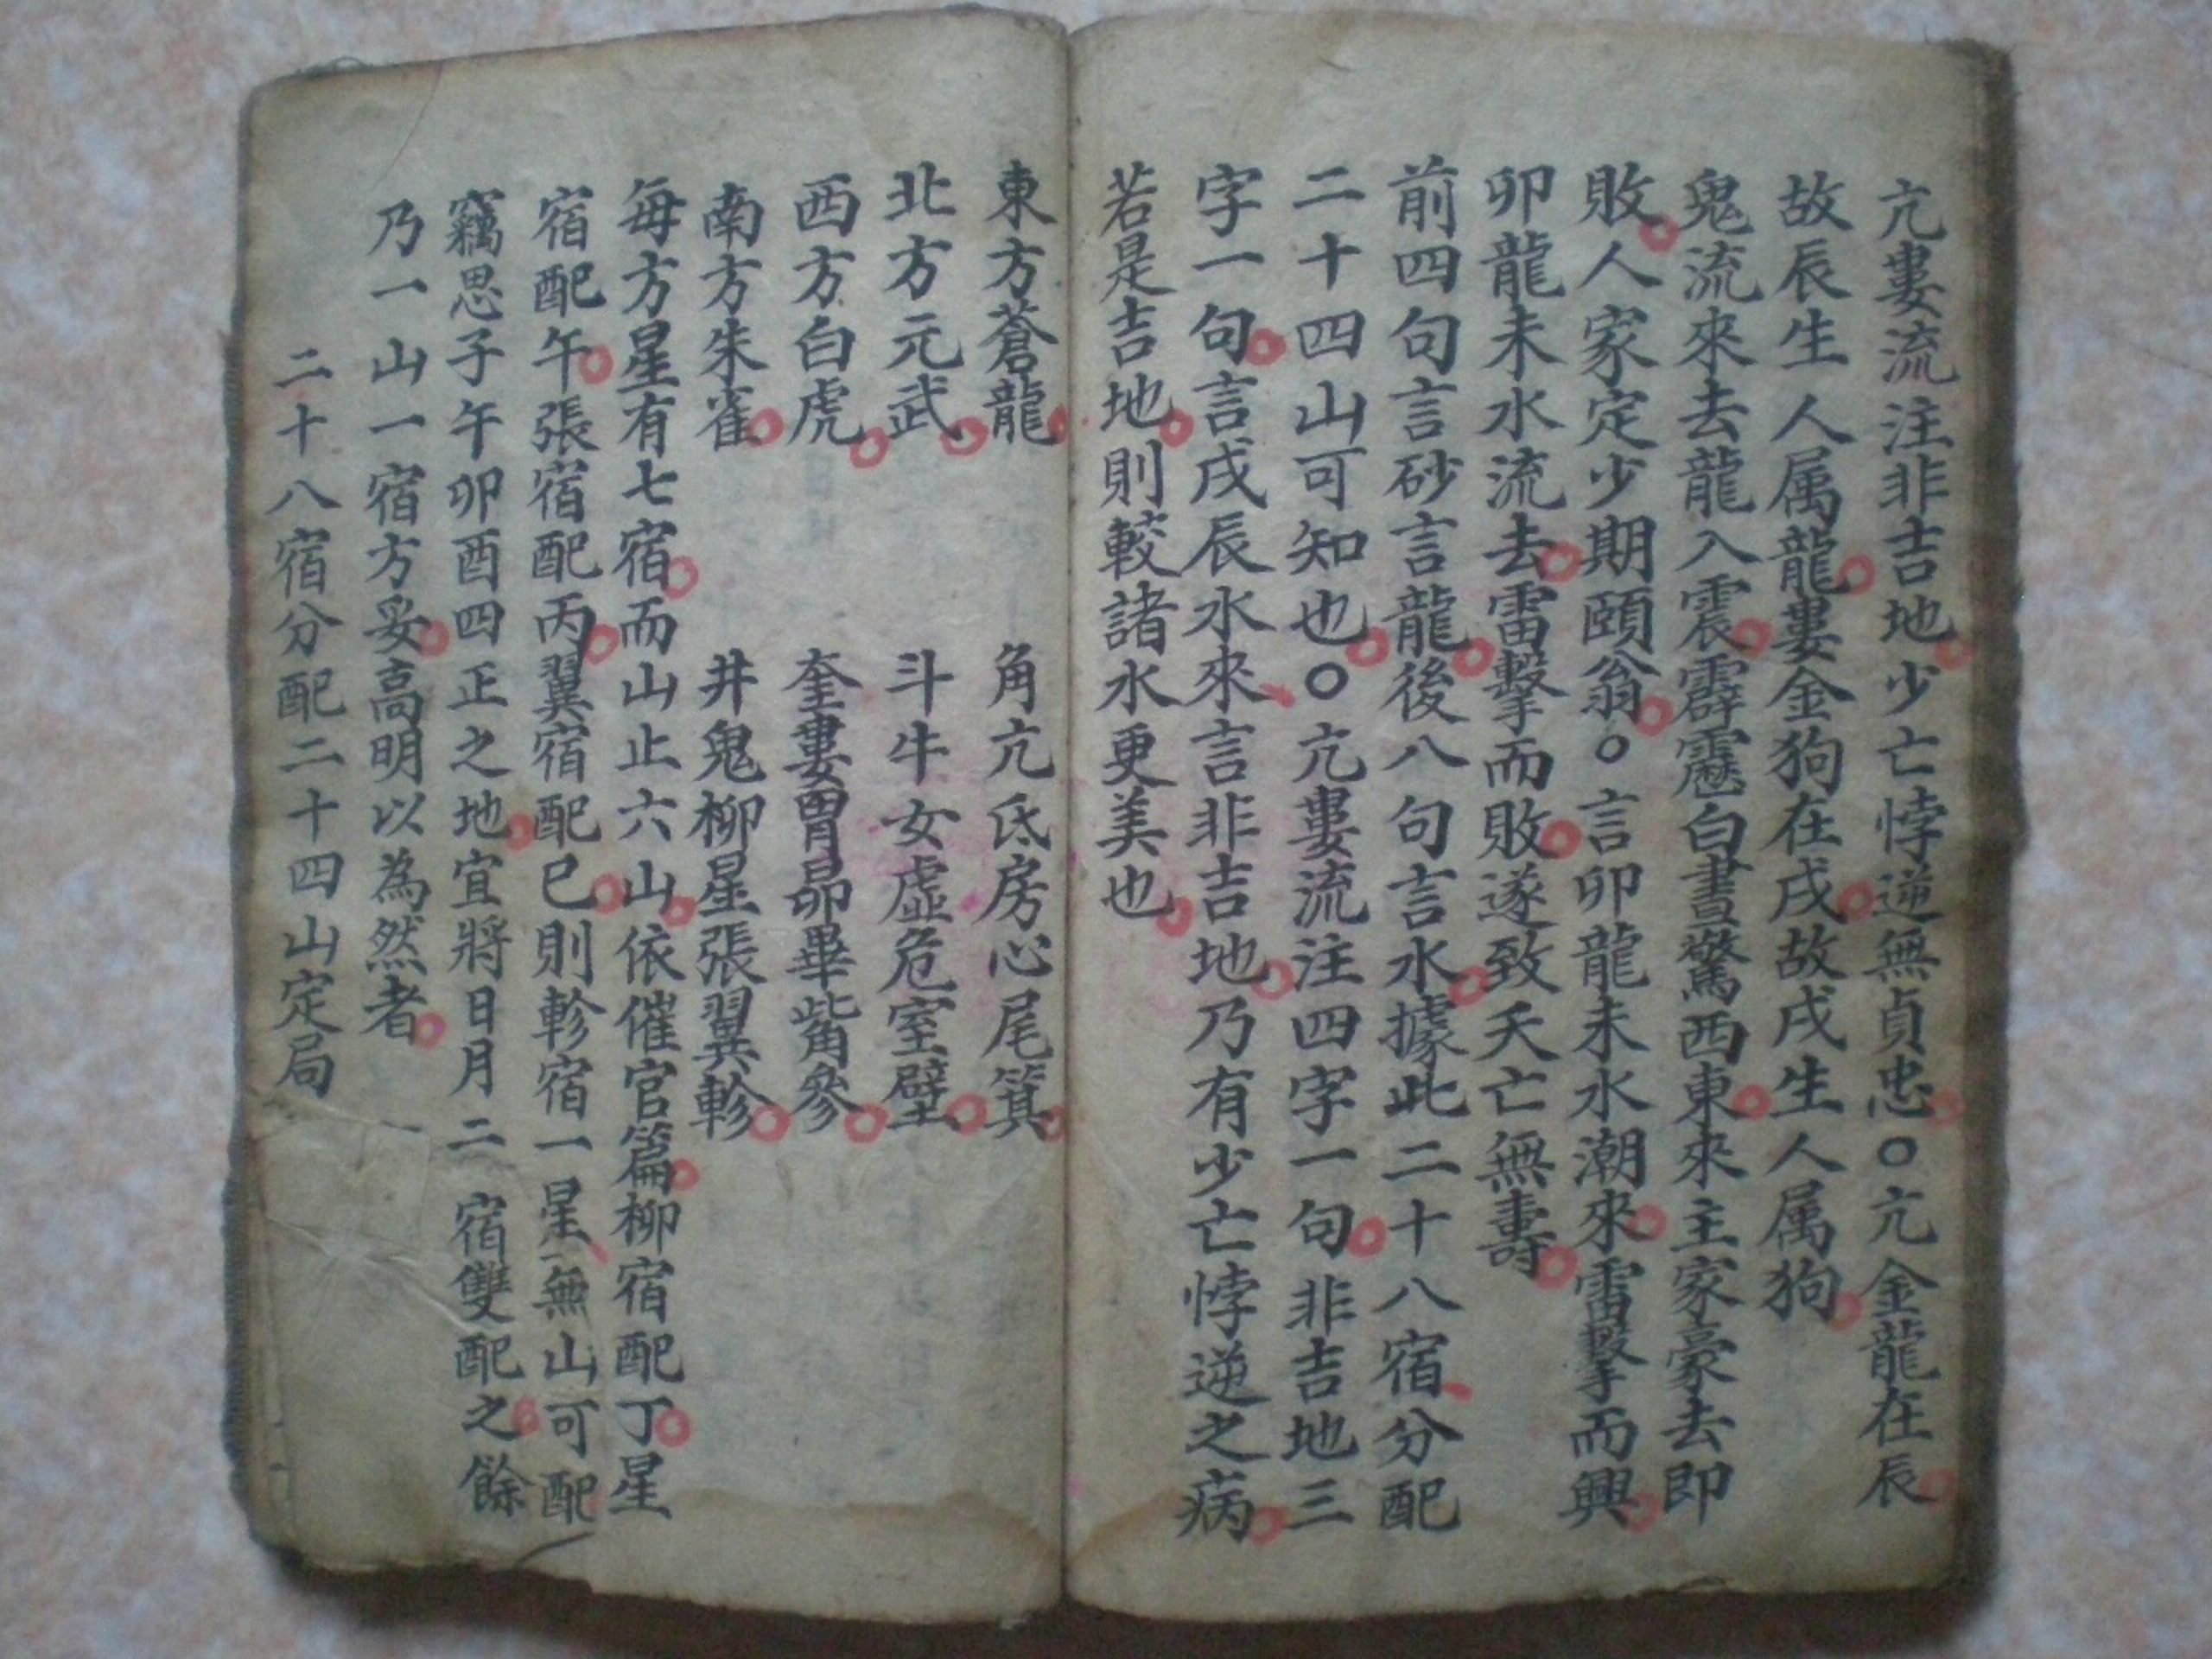 亢婁流注非吉地少亡悖逆無貞忠○亢金龍在辰
故辰生人属龍婁金狗在戌故戌生人属狗
鬼流來去龍入震霹靂白晝驚西東來主家豪去即
敗人家定少期頤翁○言卯龍未水潮來雷擊而興
卯龍未水流去雷擊而敗遂致夭亡無壽
前四句言砂言龍後八句言水據此二十八宿分配
二十四山可知也○亢婁流注四字一句非吉地三
字一句言戌辰水來言非吉地乃有少亡悖逆之病
若是吉地則較諸水更美也
東方蒼龍 角亢氐房心尾箕
北方元武 斗牛女虛危室壁
西方白虎 奎婁胃昴畢觜參
南方朱雀 井鬼柳星張翼軫
每方星有七宿而山止六山依催官篇柳宿配丁星
宿配午張宿配丙翼宿配巳則軫宿一星無山可配
竊思子午卯酉四正之地宜將日月二宿雙配之餘
乃一山一宿方妥高明以為然者
二十八宿分配二十四山定局